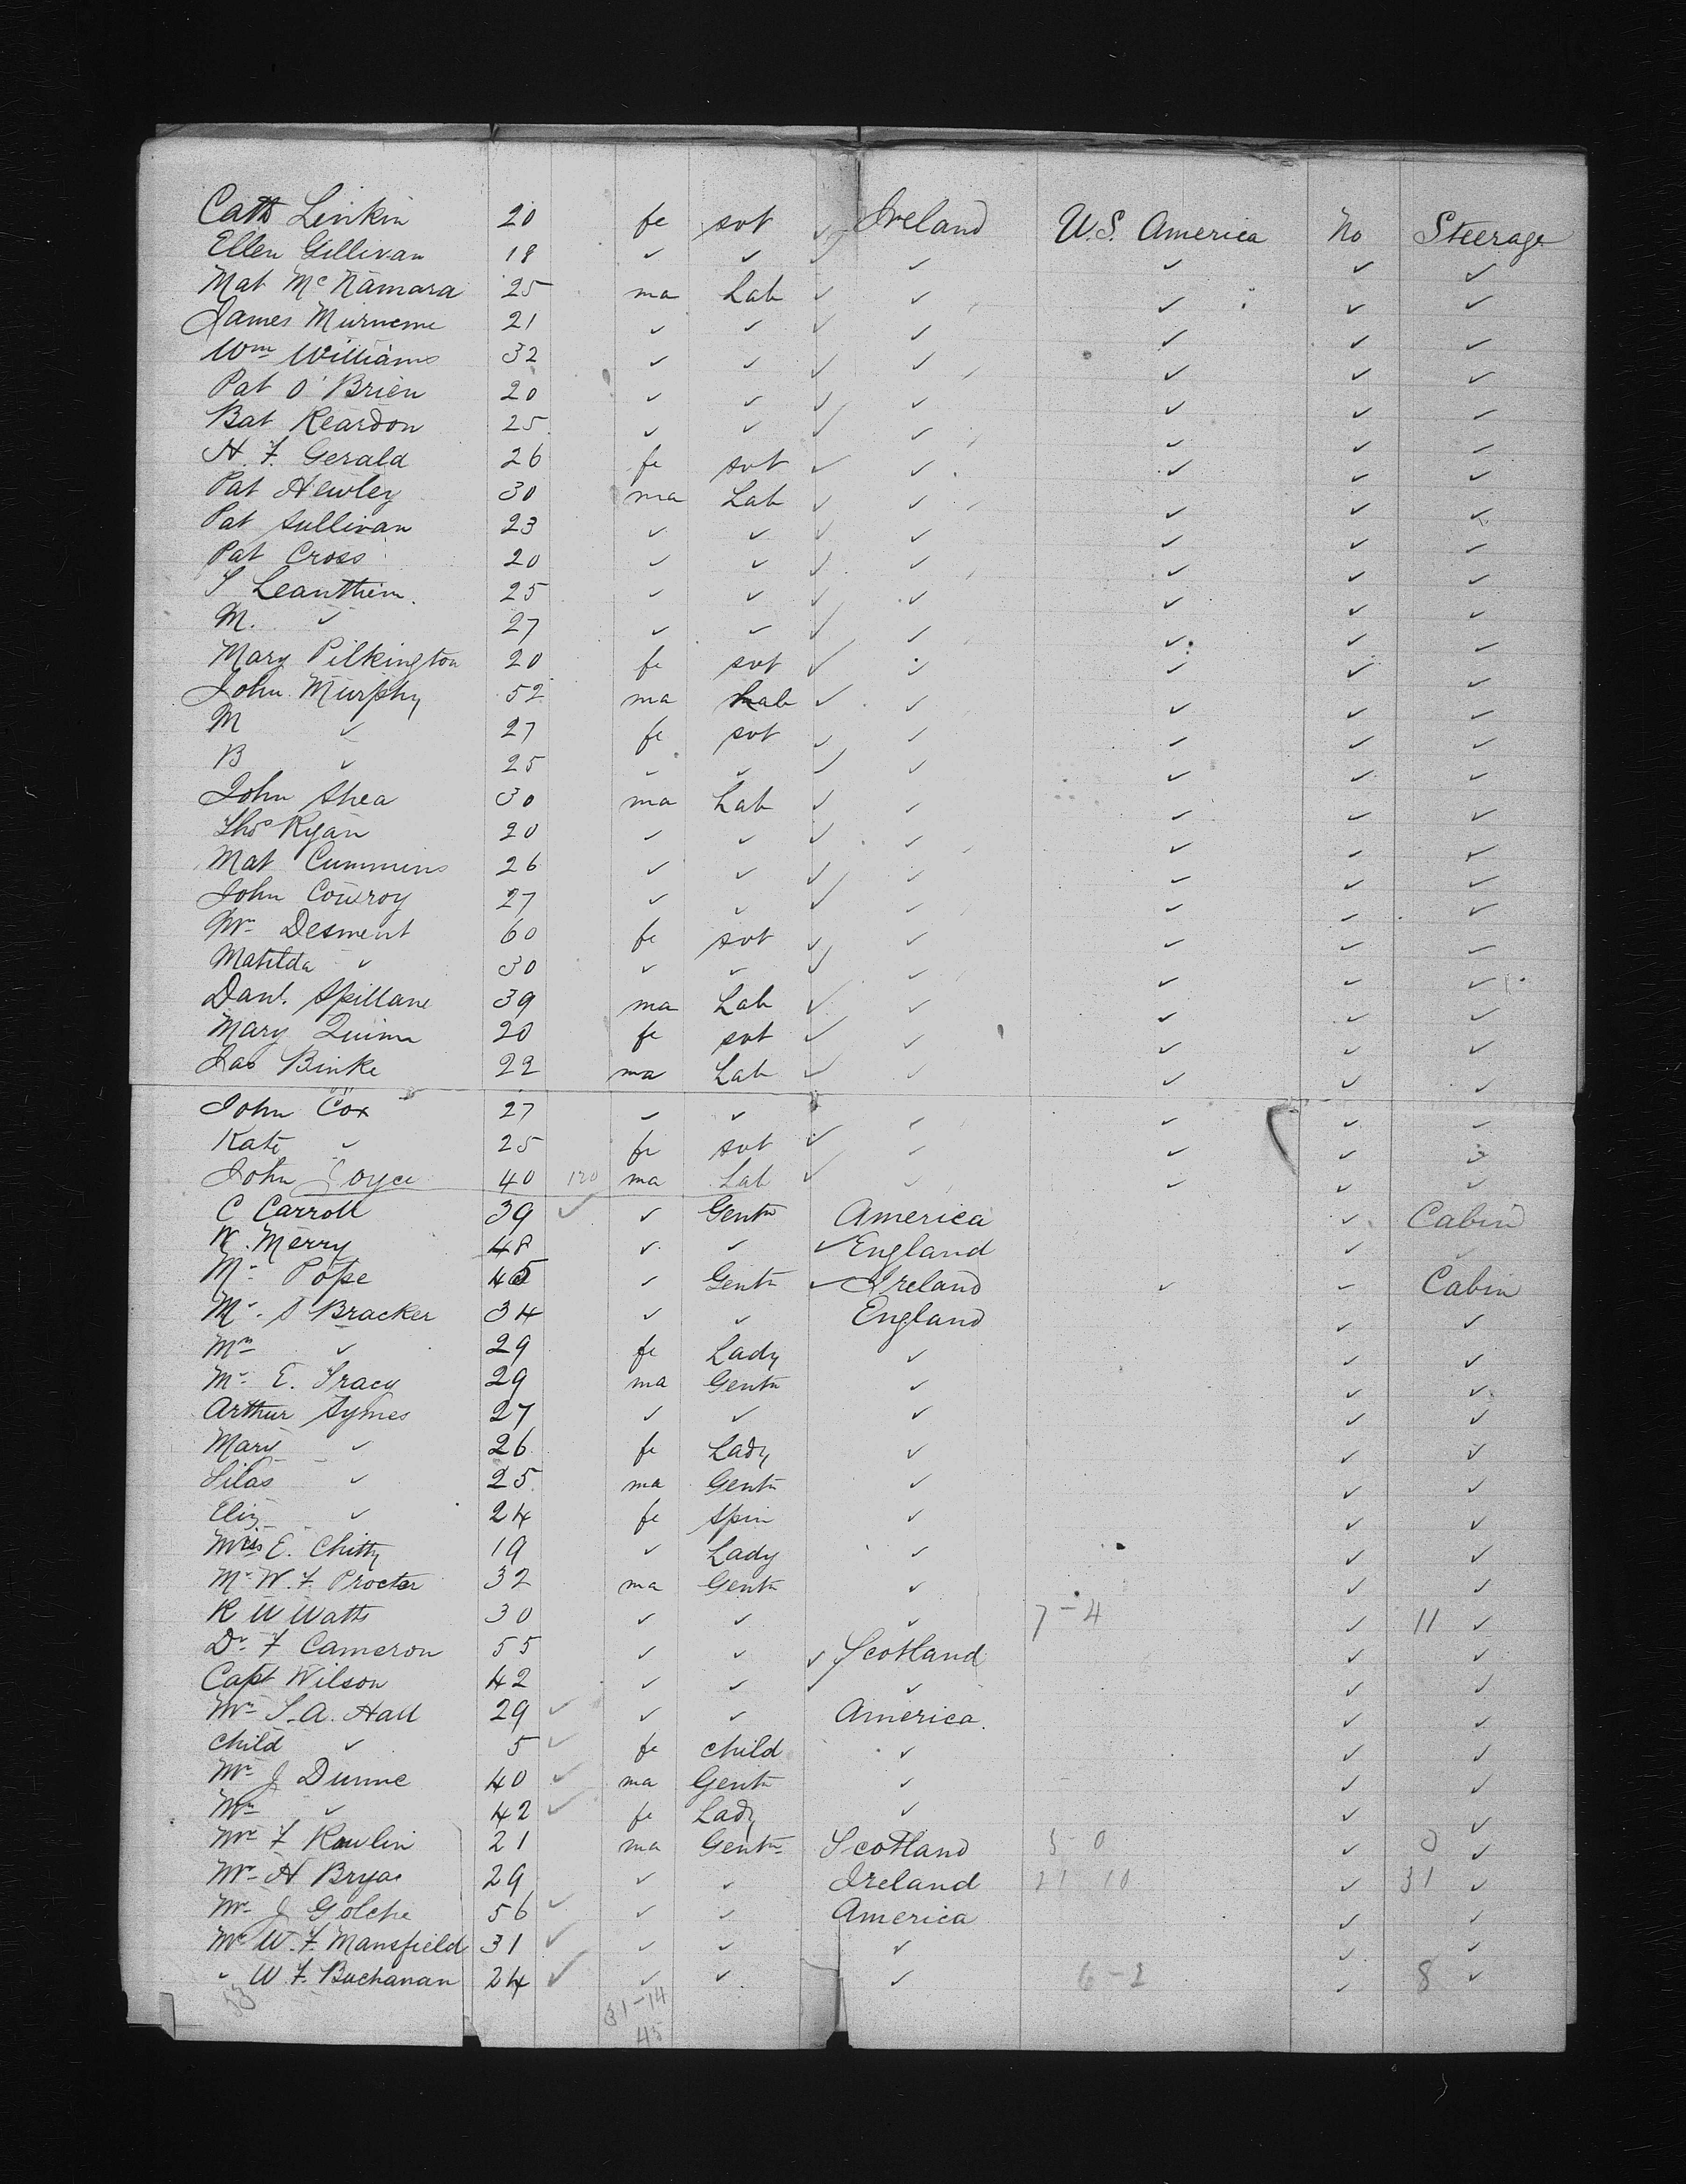 Cath Linkin 20 fe svt ✓ Ireland U.S. America No Steerage
Ellen Gillivan 18 ✓ ✓ ✓ ✓ ✓ ✓ ✓
Mat McNamara 25 ma Lab ✓ ✓ ✓ ✓ ✓
James Murneme 21 ✓ ✓ ✓ ✓ ✓ ✓ ✓
Wm Williams 32 ✓ ✓ ✓ ✓ ✓ ✓ ✓
Pat O'Brien 20 ✓ ✓ ✓ ✓ ✓ ✓ ✓
Bat Reardon 25 ✓ ✓ ✓ ✓ ✓ ✓ ✓
H. F. Gerald 26 fe svt ✓ ✓ ✓ ✓ ✓
Pat Hewley 30 ma Lab ✓ ✓ ✓ ✓ ✓
Pat Sullivan 23 ✓ ✓ ✓ ✓ ✓ ✓ ✓
Pat Cross 20 ✓ ✓ ✓ ✓ ✓ ✓ ✓
S Leanthim. 25 ✓ ✓ ✓ ✓ ✓ ✓ ✓
M. ✓ 27 ✓ ✓ ✓ ✓ ✓ ✓ ✓
Mary Pilkington 20 fe svt ✓ ✓ ✓ ✓ ✓
John Murphy 52 ma Lab ✓ ✓ ✓ ✓ ✓
M ✓ 27 fe svt ✓ ✓ ✓ ✓ ✓
B ✓ 25 ✓ ✓ ✓ ✓ ✓ ✓ ✓
John Shea 30 ma Lab ✓ ✓ ✓ ✓ ✓
Thos Ryan 20 ✓ ✓ ✓ ✓ ✓ ✓ ✓
Mat Cummins 26 ✓ ✓ ✓ ✓ ✓ ✓ ✓
John Conroy 27 ✓ ✓ ✓ ✓ ✓ ✓ ✓
Mrs Desment 60 fe svt ✓ ✓ ✓ ✓ ✓
Matilda ✓ 30 ✓ ✓ ✓ ✓ ✓ ✓ ✓
Danl. Spillane 39 ma Lab ✓ ✓ ✓ ✓ ✓
Mary Quinn 20 fe svt ✓ ✓ ✓ ✓ ✓
Jas Binke 22 ma Lab ✓ ✓ ✓ ✓ ✓
John Cox 27 ✓ ✓ ✓ ✓ ✓ ✓
Kate ✓ 25 fe svt ✓ ✓ ✓ ✓ ✓
John Joyce 40 120 ma Lab ✓ ✓ ✓ ✓ ✓
C Carroll 39 ✓ ✓ Gentn America ✓ Cabin
W. Merry 48 ✓ ✓ ✓ England ✓ ✓
Mr Pope 45 ✓ Gentn ✓ Ireland ✓ ✓ Cabin
Mr. S Bracker 34 ✓ ✓ England ✓ ✓
Mrs ✓ 29 fe Lady ✓ ✓ ✓
Mr E. Tracy 29 ma Gentn ✓ ✓ ✓
Arthur Symes 27 ✓ ✓ ✓ ✓ ✓
Mary ✓ 26 fe Lady ✓ ✓ ✓
Silas ✓ 25 ma Gentn ✓ ✓ ✓
Eliz ✓ 24 fe Spin ✓ ✓ ✓
E. Chitty 19 ✓ Lady ✓ ✓ ✓
Mr W. F. Procter 32 ma Gentn ✓ ✓ ✓
R W Watts 30 ✓ ✓ ✓ 7-4 ✓ 11 ✓
Dr F Cameron 55 ✓ ✓ ✓ Scotland ✓ ✓
Capt Wilson 42 ✓ ✓ ✓ ✓ ✓ ✓
Mr S. A. Hall 29 ✓ ✓ ✓ America. ✓ ✓
child ✓ 5 ✓ fe child ✓ ✓ ✓
Mr J Dunne 40 ✓ ma Gentn ✓ ✓ ✓
Mrs ✓ 42 ✓ fe Lady ✓ ✓ ✓
Mr F Rawlin 21 ma Gentn Scotland 0 ✓ 0 ✓
Mr H Bryas 29 ✓ ✓ Ireland 21 10 ✓ 31 ✓
Mr J Golche 56 ✓ ✓ ✓ America ✓ ✓
Mr W. F. Mansfield 31 ✓ ✓ ✓ ✓ ✓ ✓
✓ W. F. Buchanan 24 ✓ ✓ ✓ ✓ 6-2 ✓ 8 ✓
53 31-14
45